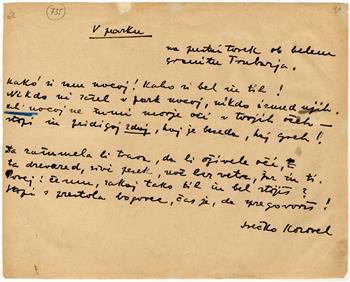 735
V parku
na pustni torek ob belem
granitu Trubarja.
Kako si nem nocoj! Kako si bel in tih!
Nikdo ni zašel v park nocoj, nikdo izmed njih.
nocoj ne zunaj morje oči v tvojih očeh
stopi in pridigaj zdaj, kaj je beseda, kaj greh!
Da razumela bi trava, da bi oživele oči,
ta drevored, sivi pesek, noč brez vetra, jaz in ti.
Povej! čemu, zakaj tako tih in bel stojiš?
Stopi s prestola bogovec, čas je, da spregovoriš!
Srečko Kosovel